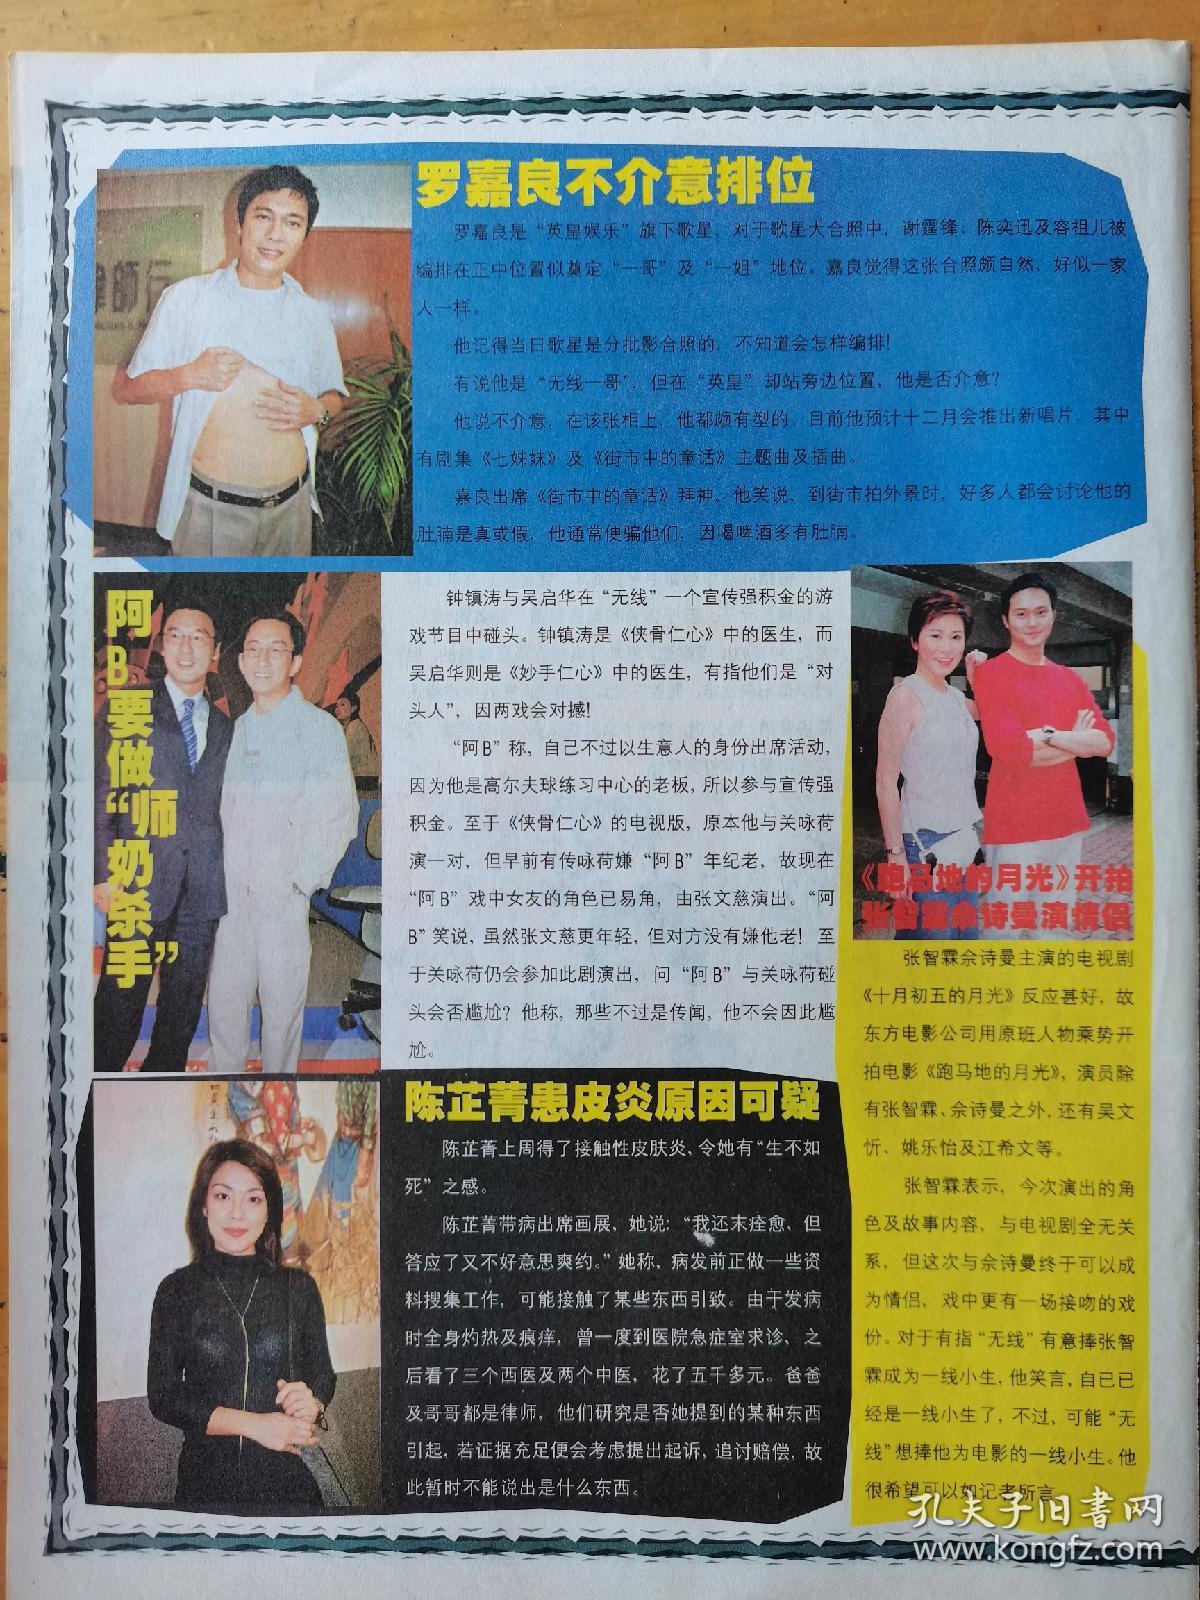 罗嘉良不介意排位
罗嘉良是“英皇娱乐”旗下歌星，对于歌星大合照中，谢霆锋、陈奕迅及容祖儿被
编排在正中位置似奠定“一哥”及“一姐”地位。嘉良觉得这张合照颇自然，好似一家
人一样。
他记得当日歌星是分批影合照的，不知道会怎样编排！
有说他是“无线一哥”，但在“英皇”却站旁边位置，他是否介意？
他说不介意，在该张相上，他都颇有型的。目前他预计十二月会推出新唱片，其中
有剧集《七妹妹》及《街市中的童话》主题曲及插曲。
嘉良出席《街市中的童话》拜神，他笑说，到街市拍外景时，好多人都会讨论他的
肚腩是真或假，他通常便骗他们，因喝啤酒多有肚腩。
律師行
阿B要做“师奶杀手”
钟镇涛与吴启华在“无线”一个宣传强积金的游
戏节目中碰头。钟镇涛是《侠骨仁心》中的医生，而
吴启华则是《妙手仁心》中的医生，有指他们是“对
头人”，因两戏会对撼！
“阿B”称，自己不过以生意人的身份出席活动，
因为他是高尔夫球练习中心的老板，所以参与宣传强
积金。至于《侠骨仁心》的电视版，原本他与关咏荷
演一对，但早前有传咏荷嫌“阿B”年纪老，故现在
“阿B”戏中女友的角色已易角，由张文慈演出。“阿
B”笑说，虽然张文慈更年轻，但对方没有嫌他老！至
于关咏荷仍会参加此剧演出，问“阿B”与关咏荷碰
头会否尴尬？他称，那些不过是传闻，他不会因此尴
尬。
《跑马地的月光》开拍
张智霖佘诗曼演情侣
张智霖佘诗曼主演的电视剧
《十月初五的月光》反应甚好，故
东方电影公司用原班人物乘势开
拍电影《跑马地的月光》，演员除
有张智霖、佘诗曼之外，还有吴文
忻、姚乐怡及江希文等。
张智霖表示，今次演出的角
色及故事内容，与电视剧全无关
系，但这次与佘诗曼终于可以成
为情侣，戏中更有一场接吻的戏
份。对于有指“无线”有意捧张智
霖成为一线小生，他笑言，自已已
经是一线小生了，不过，可能“无
线”想捧他为电影的一线小生。他
很希望可以如记者所言。
陈芷菁患皮炎原因可疑
陈芷菁上周得了接触性皮肤炎，令她有“生不如
死”之感。
陈芷菁带病出席画展，她说：“我还未痊愈，但
答应了又不好意思爽约。”她称，病发前正做一些资
料搜集工作，可能接触了某些东西引致。由于发病
时全身灼热及痕痒，曾一度到医院急症室求诊，之
后看了三个西医及两个中医，花了五千多元。爸爸
及哥哥都是律师，他们研究是否她提到的某种东西
引起，若证据充足便会考虑提出起诉，追讨赔偿，故
此暂时不能说出是什么东西。
孔夫子旧书网
www.kongfz.com